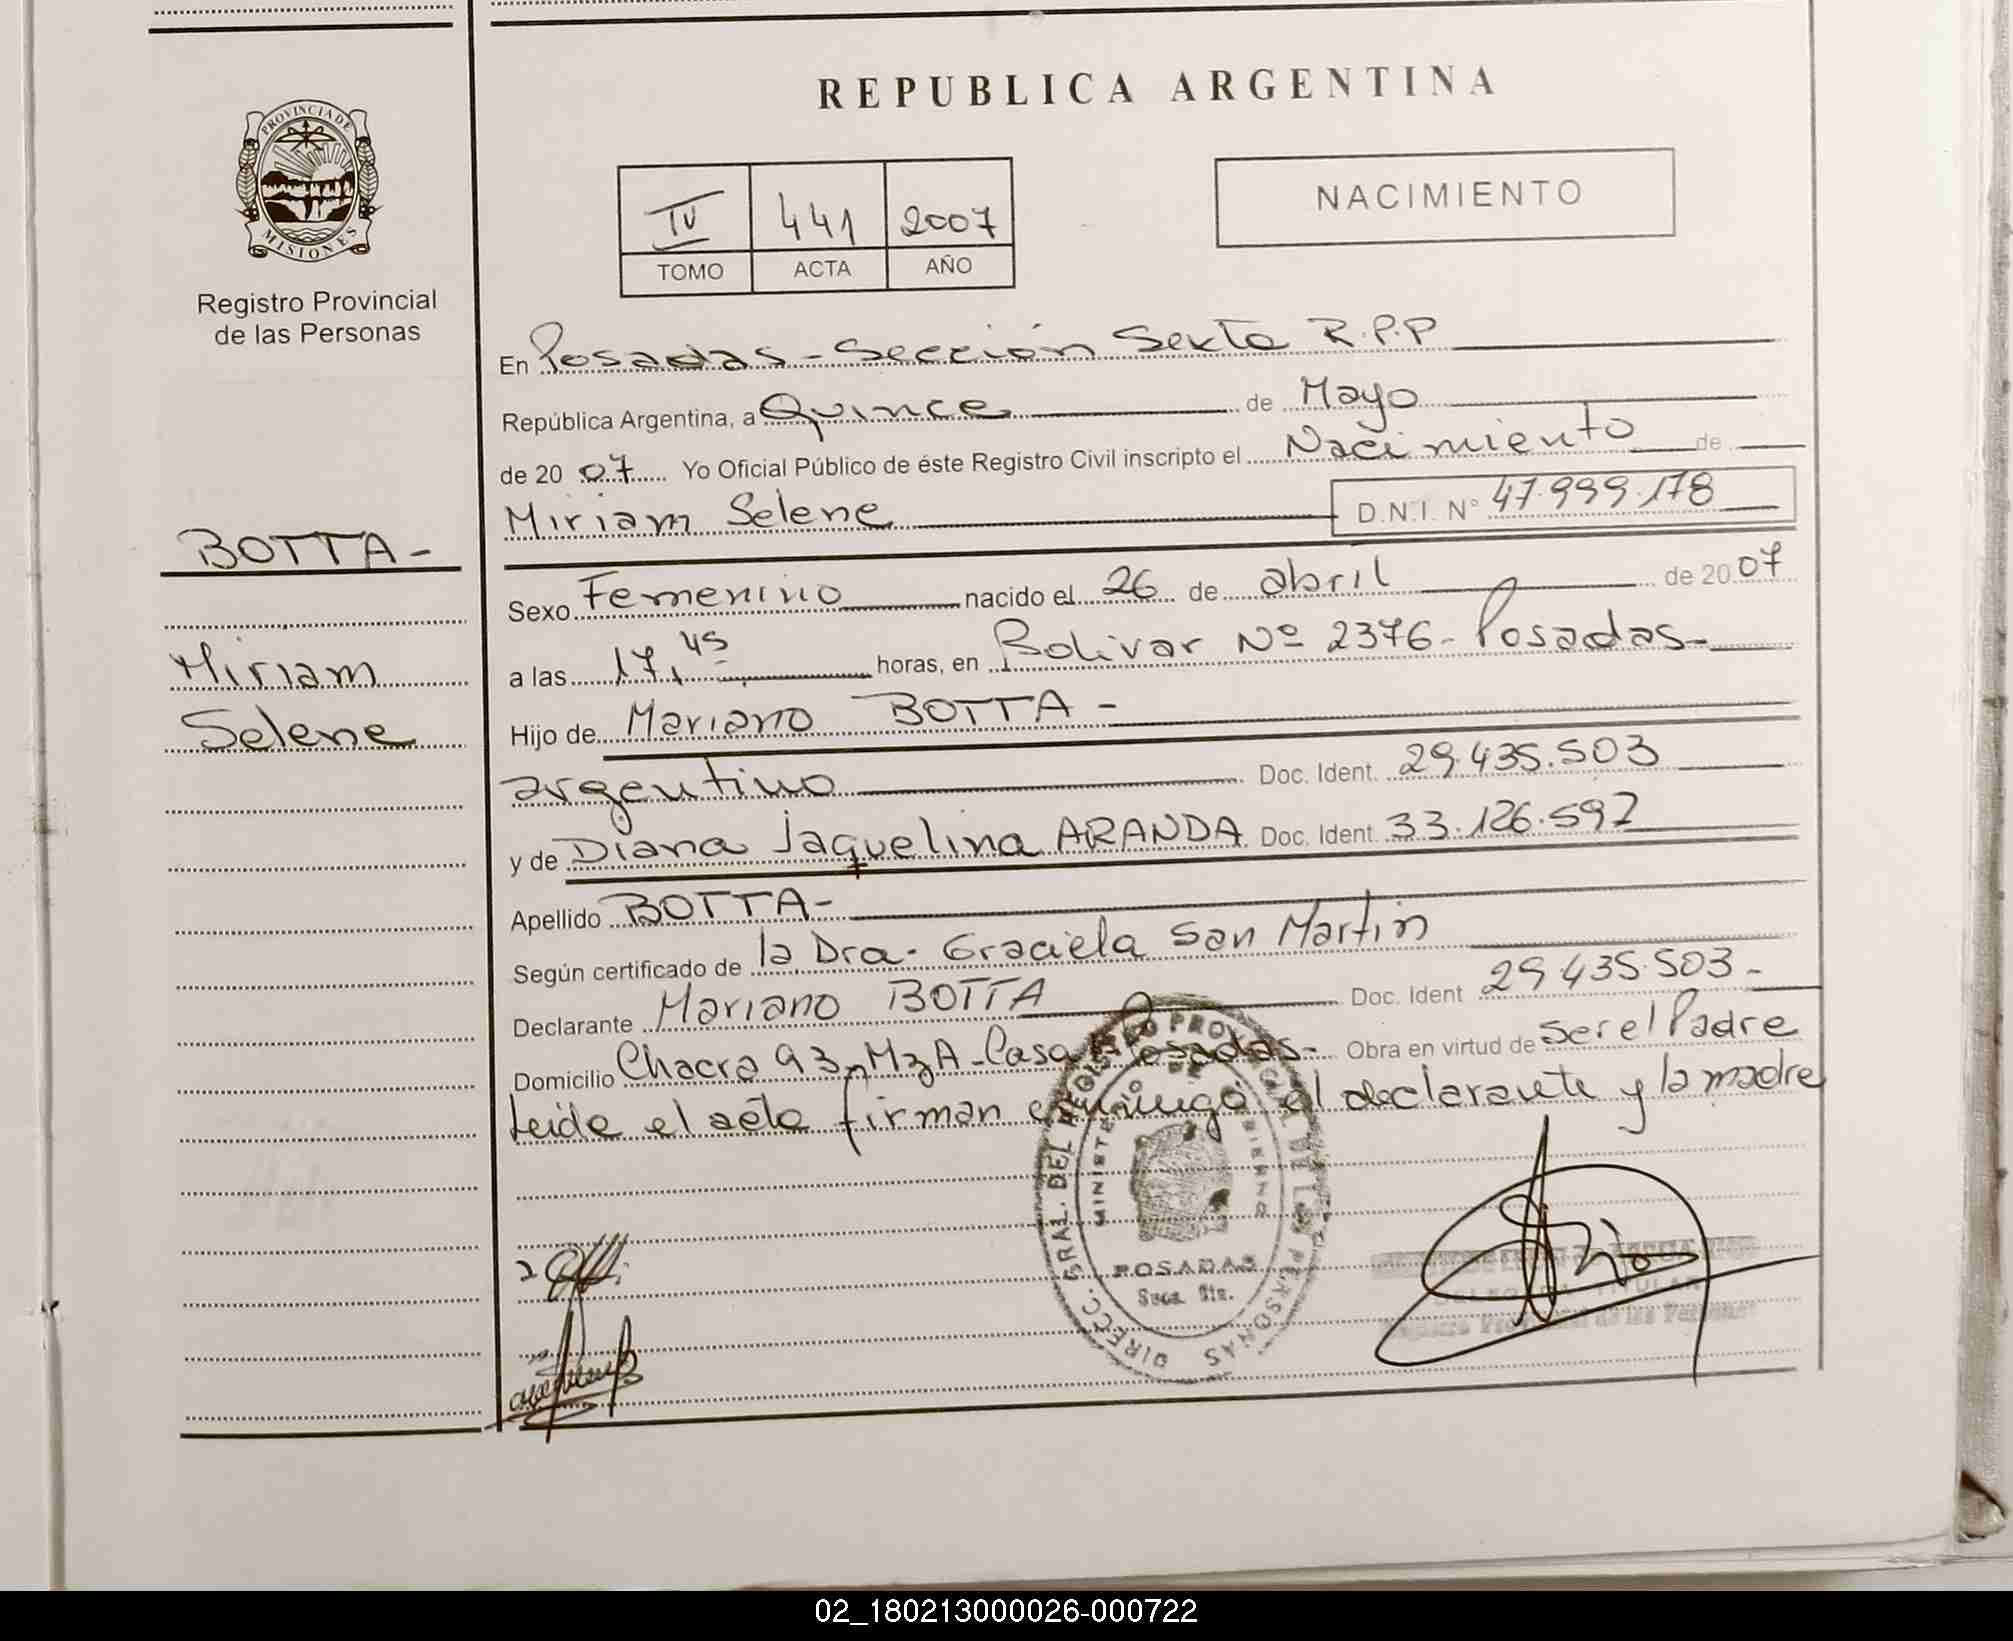 REPUBLICA ARGENTINA
PROVINCIA DE
MISIONES
Registro Provincial
de las Personas
IV 441 2007
TOMO ACTA AÑO
NACIMIENTO
En Posadas - Sección Sexta R.P.P
República Argentina, a Quince de Mayo
de 20 07 Yo Oficial Público de éste Registro Civil inscripto el Nacimiento de
Miriam Selene D.N.I. N° 47.999.178
BOTTA-
Miriam
Selene
Sexo Femenino nacido el 26 de abril de 20 07
a las 17,45 horas, en Bolivar Nº 2376 - Posadas-
Hijo de Mariano BOTTA -
argentino Doc. Ident. 29.435.503
y de Diana Jaquelina ARANDA Doc. Ident. 33.126.592
Apellido BOTTA-
Según certificado de la Dra. Graciela San Martin
Declarante Mariano BOTTA Doc. Ident 29.435.503-
Domicilio Chacra 93, MzA - Casa Posadas- Obra en virtud de ser el Padre
Leida el acta firman conmigo el declarante y la madre
DIRECC. GRAL. DEL REGISTRO PROVINCIAL DE PERSONAS
MINISTERIO DE GOBIERNO
POSADAS
Secc. 6ta.
02_180213000026-000722